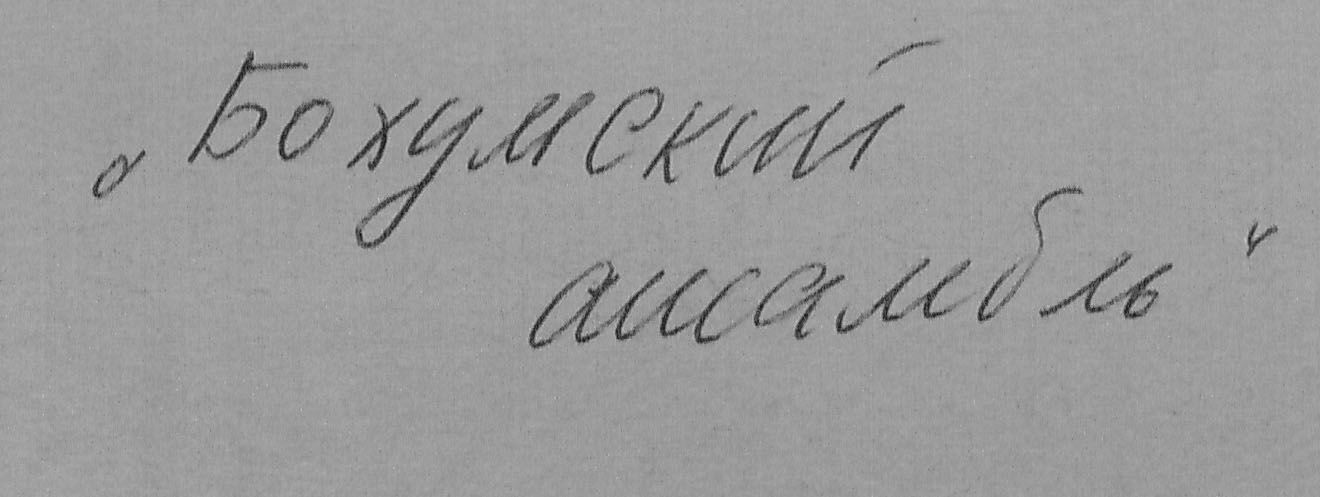 „Бохумский
ансамбль“